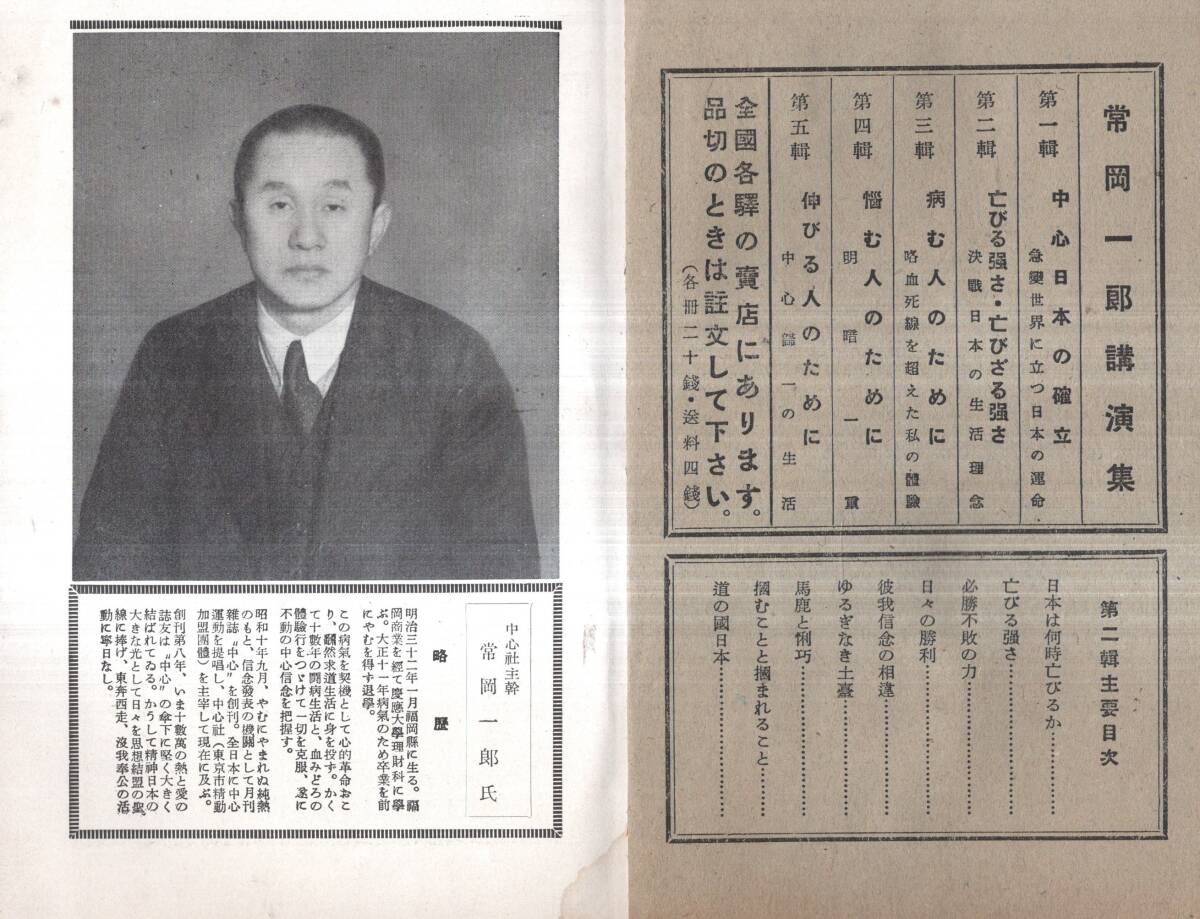 常岡一郎講演集
第一輯 中心日本の確立
急變世界に立つ日本の運命
第二輯 亡びる强さ・亡びざる强さ
決戰日本の生活理念
第三輯 病む人のために
咯血死線を超えた私の體驗
第四輯 惱む人のために
明暗一
第五輯 伸びる人のために
中心歸一の生活
全國各驛の賣店にあります。
品切のときは註文して下さい。
(各冊二十錢・送料四錢)
第二輯主要目次
日本は何時亡びるか
亡びる强さ
必勝不敗の力
日々の勝利
彼我信念の相違
ゆるぎなき土臺
馬鹿と悧巧
摑むことと摑まれること
道の國日本
中心社主幹
常岡一郎氏
略歷
明治三十二年一月福岡縣に生る。福
岡商業を經て慶應大學理財科に學
ぶ。大正十一年病氣のため卒業を前
にやむを得ず退學。
この病氣を契機として心的革命おこ
り、飜然求道生活に身を投ず。かく
て十數年の鬪病生活と、血みどろの
體驗行をつゞけて一切を克服、遂に
不動の中心信念を把握す。
昭和十年九月、やむにやまれぬ純熱
のもと、信念發表の機關として月刊
雜誌〝中心〟を創刊。全日本に中心
運動を提唱し、中心社(東京市精動
加盟團體)を主宰して現在に及ぶ。
創刊第八年、いま十數萬の熱と愛の
誌友は〝中心〟の傘下に堅く大きく
結ばれてゐる。かうして精神日本の
大きた光として日々を思想結盟の聖
線に捧げ、東奔西走、沒我奉公の活
動に寧日なし。